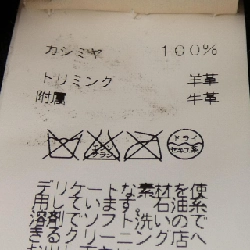 カシミヤ 100%
トリミング 羊革
附属 牛革
サラシ ドライ
セキユ系
デリケートな素材を使
用しています。石油系
溶剤でソフト洗いので
きるクリーニング店へ